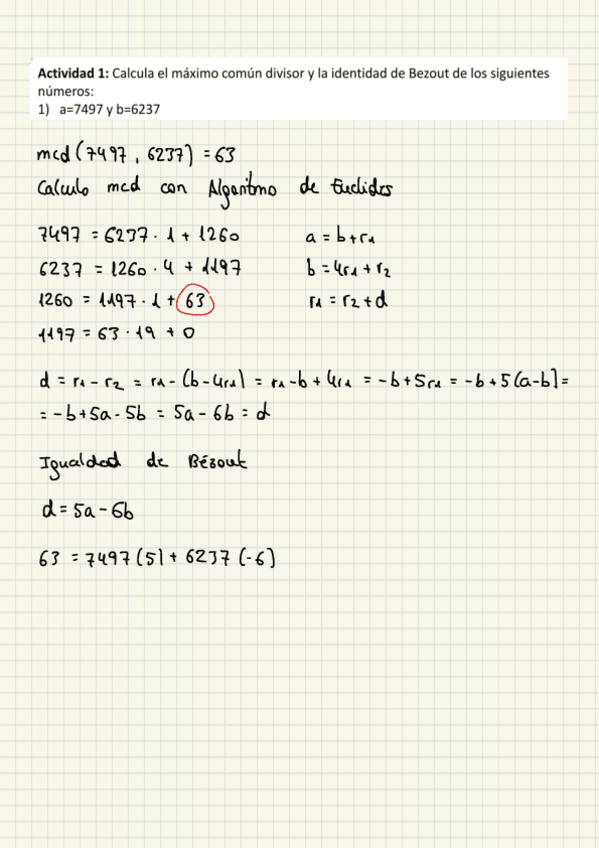 Actividad 1: Calcula el máximo común divisor y la identidad de Bezout de los siguientes
números:
1) a=7497 y b=6237
mcd (7497, 6237) = 63
Calculo mcd con Algoritmo de Euclides
7497 = 6237 · 1 + 1260 a = b + r1
6237 = 1260 · 4 + 1197 b = 4r1 + r2
1260 = 1197 · 1 + 63 r1 = r2 + d
1197 = 63 · 19 + 0
d = r1 - r2 = r1 - (b - 4r1) = r1 - b + 4r1 = -b + 5r1 = -b + 5(a-b) =
= -b + 5a - 5b = 5a - 6b = d
Igualdad de Bézout
d = 5a - 6b
63 = 7497 (5) + 6237 (-6)